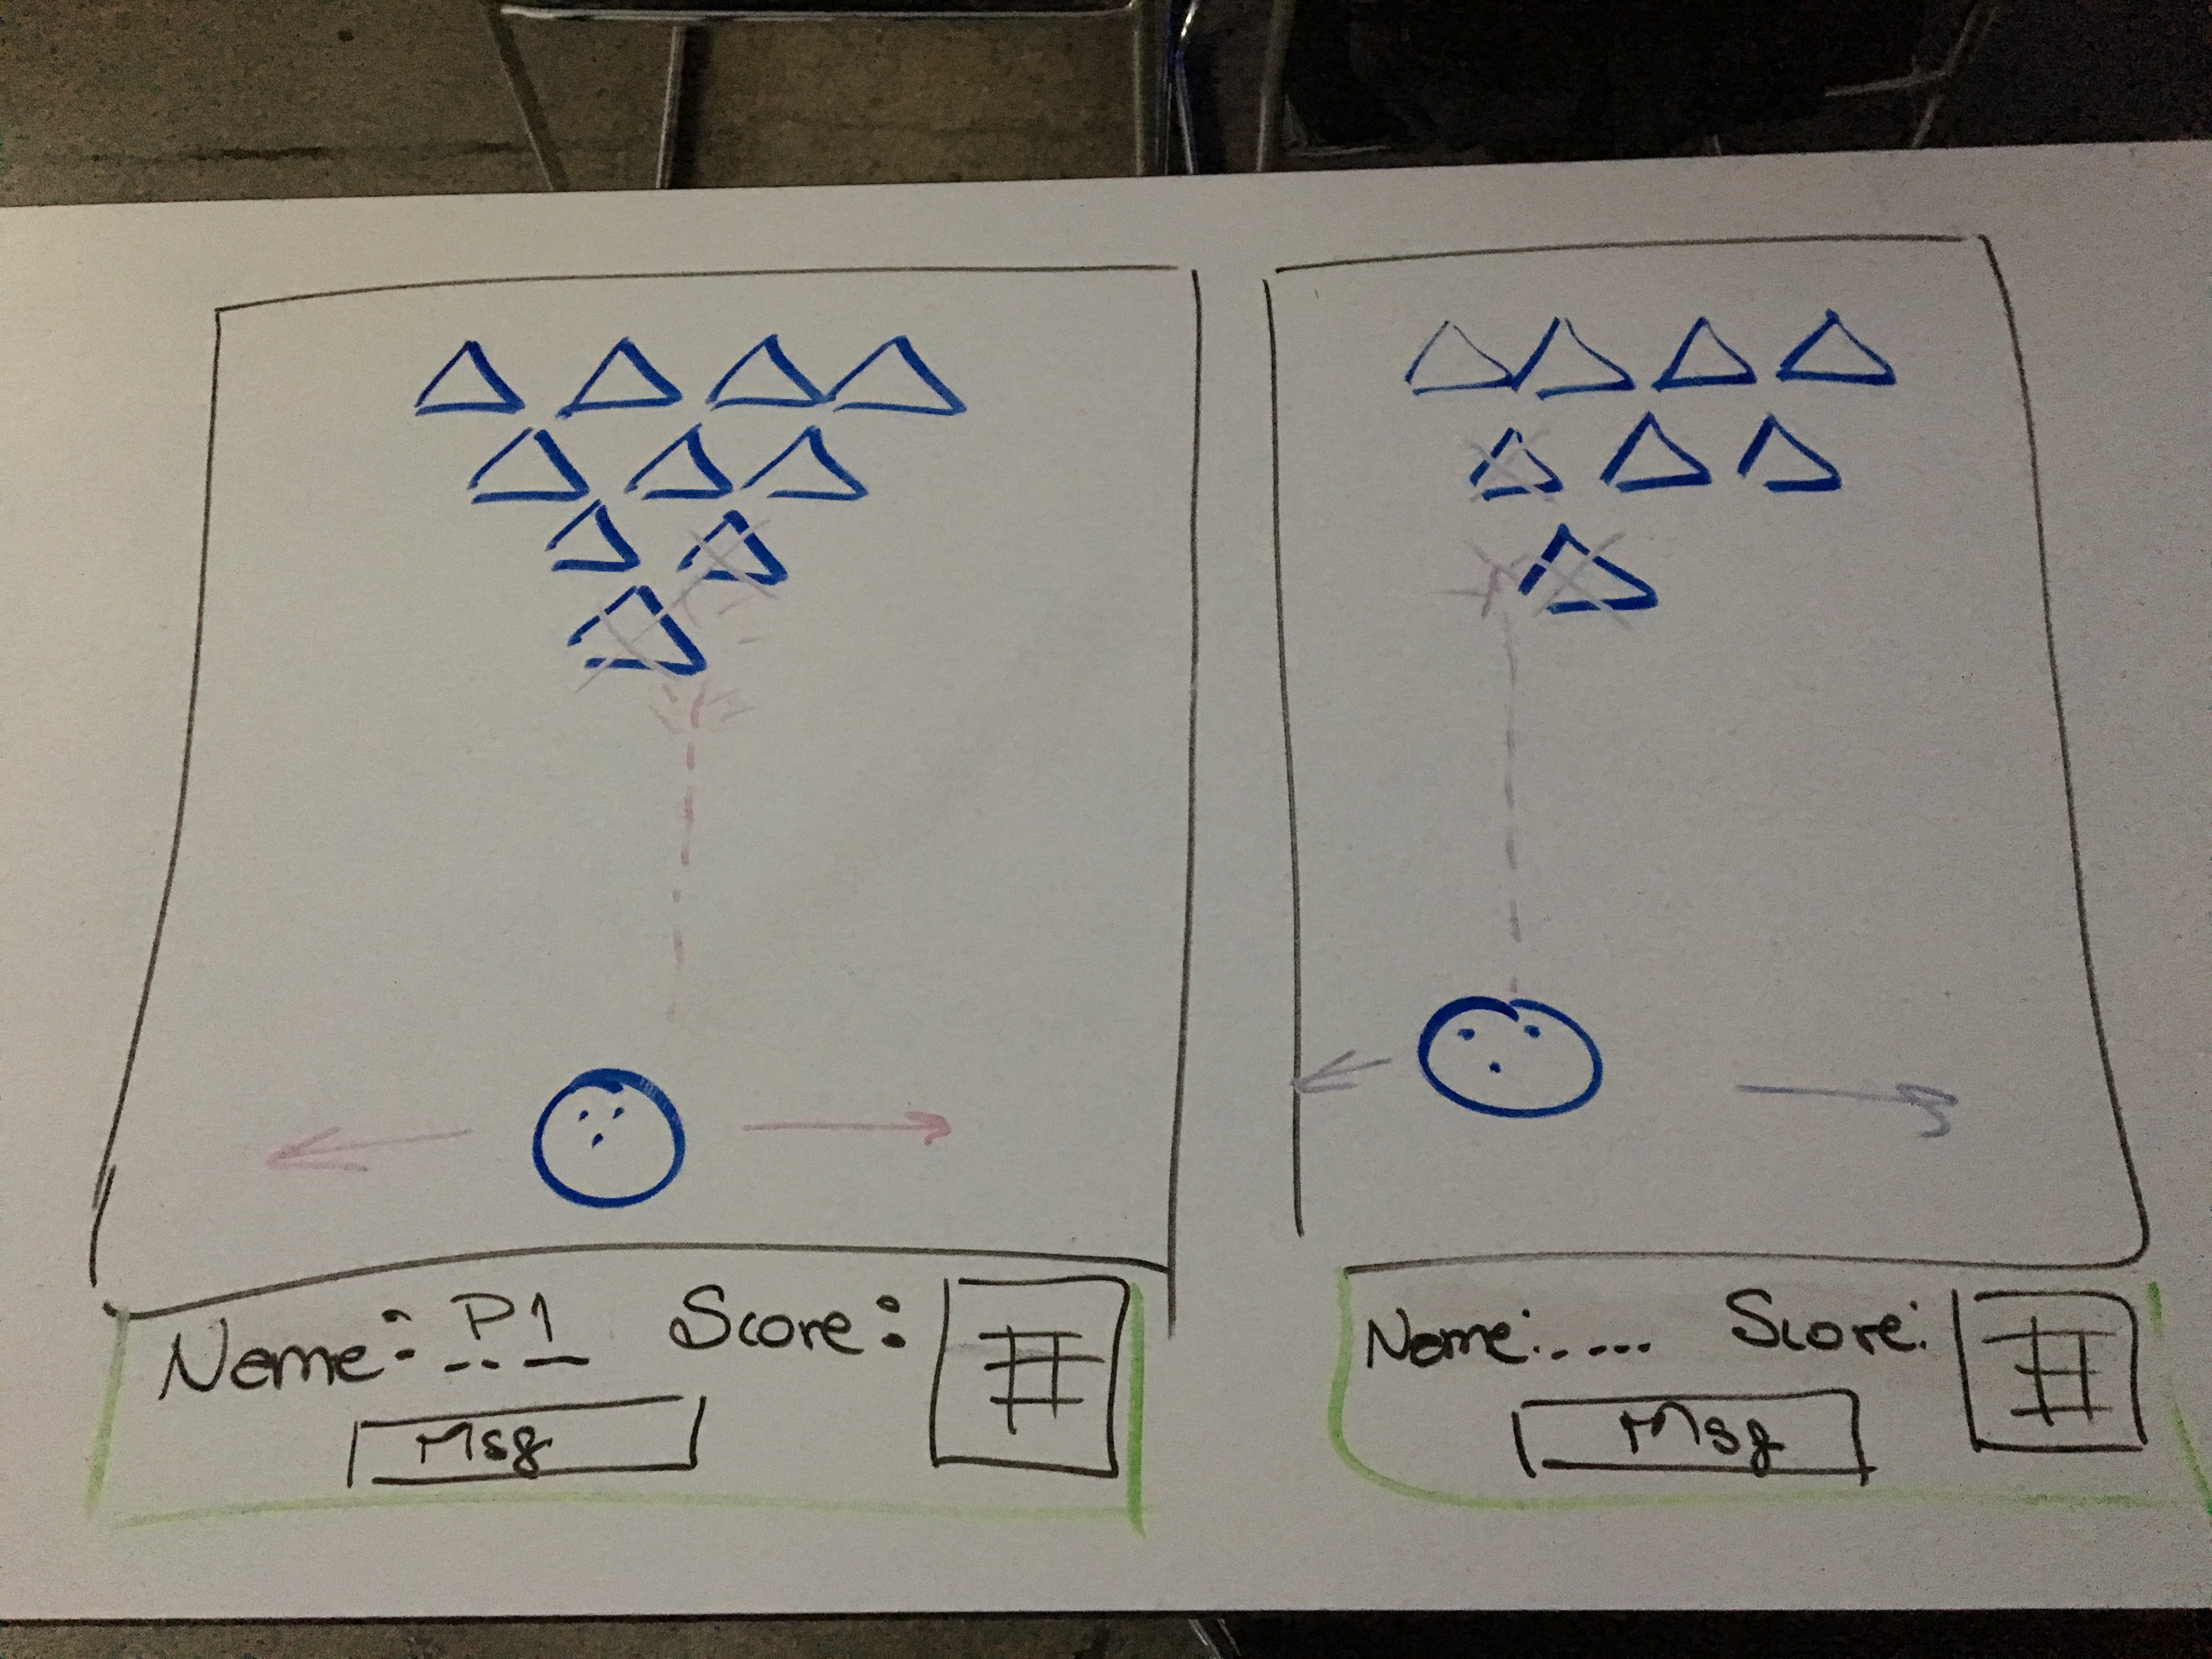 Name: P1 Score:
Msg
Name:..... Score:
Msg